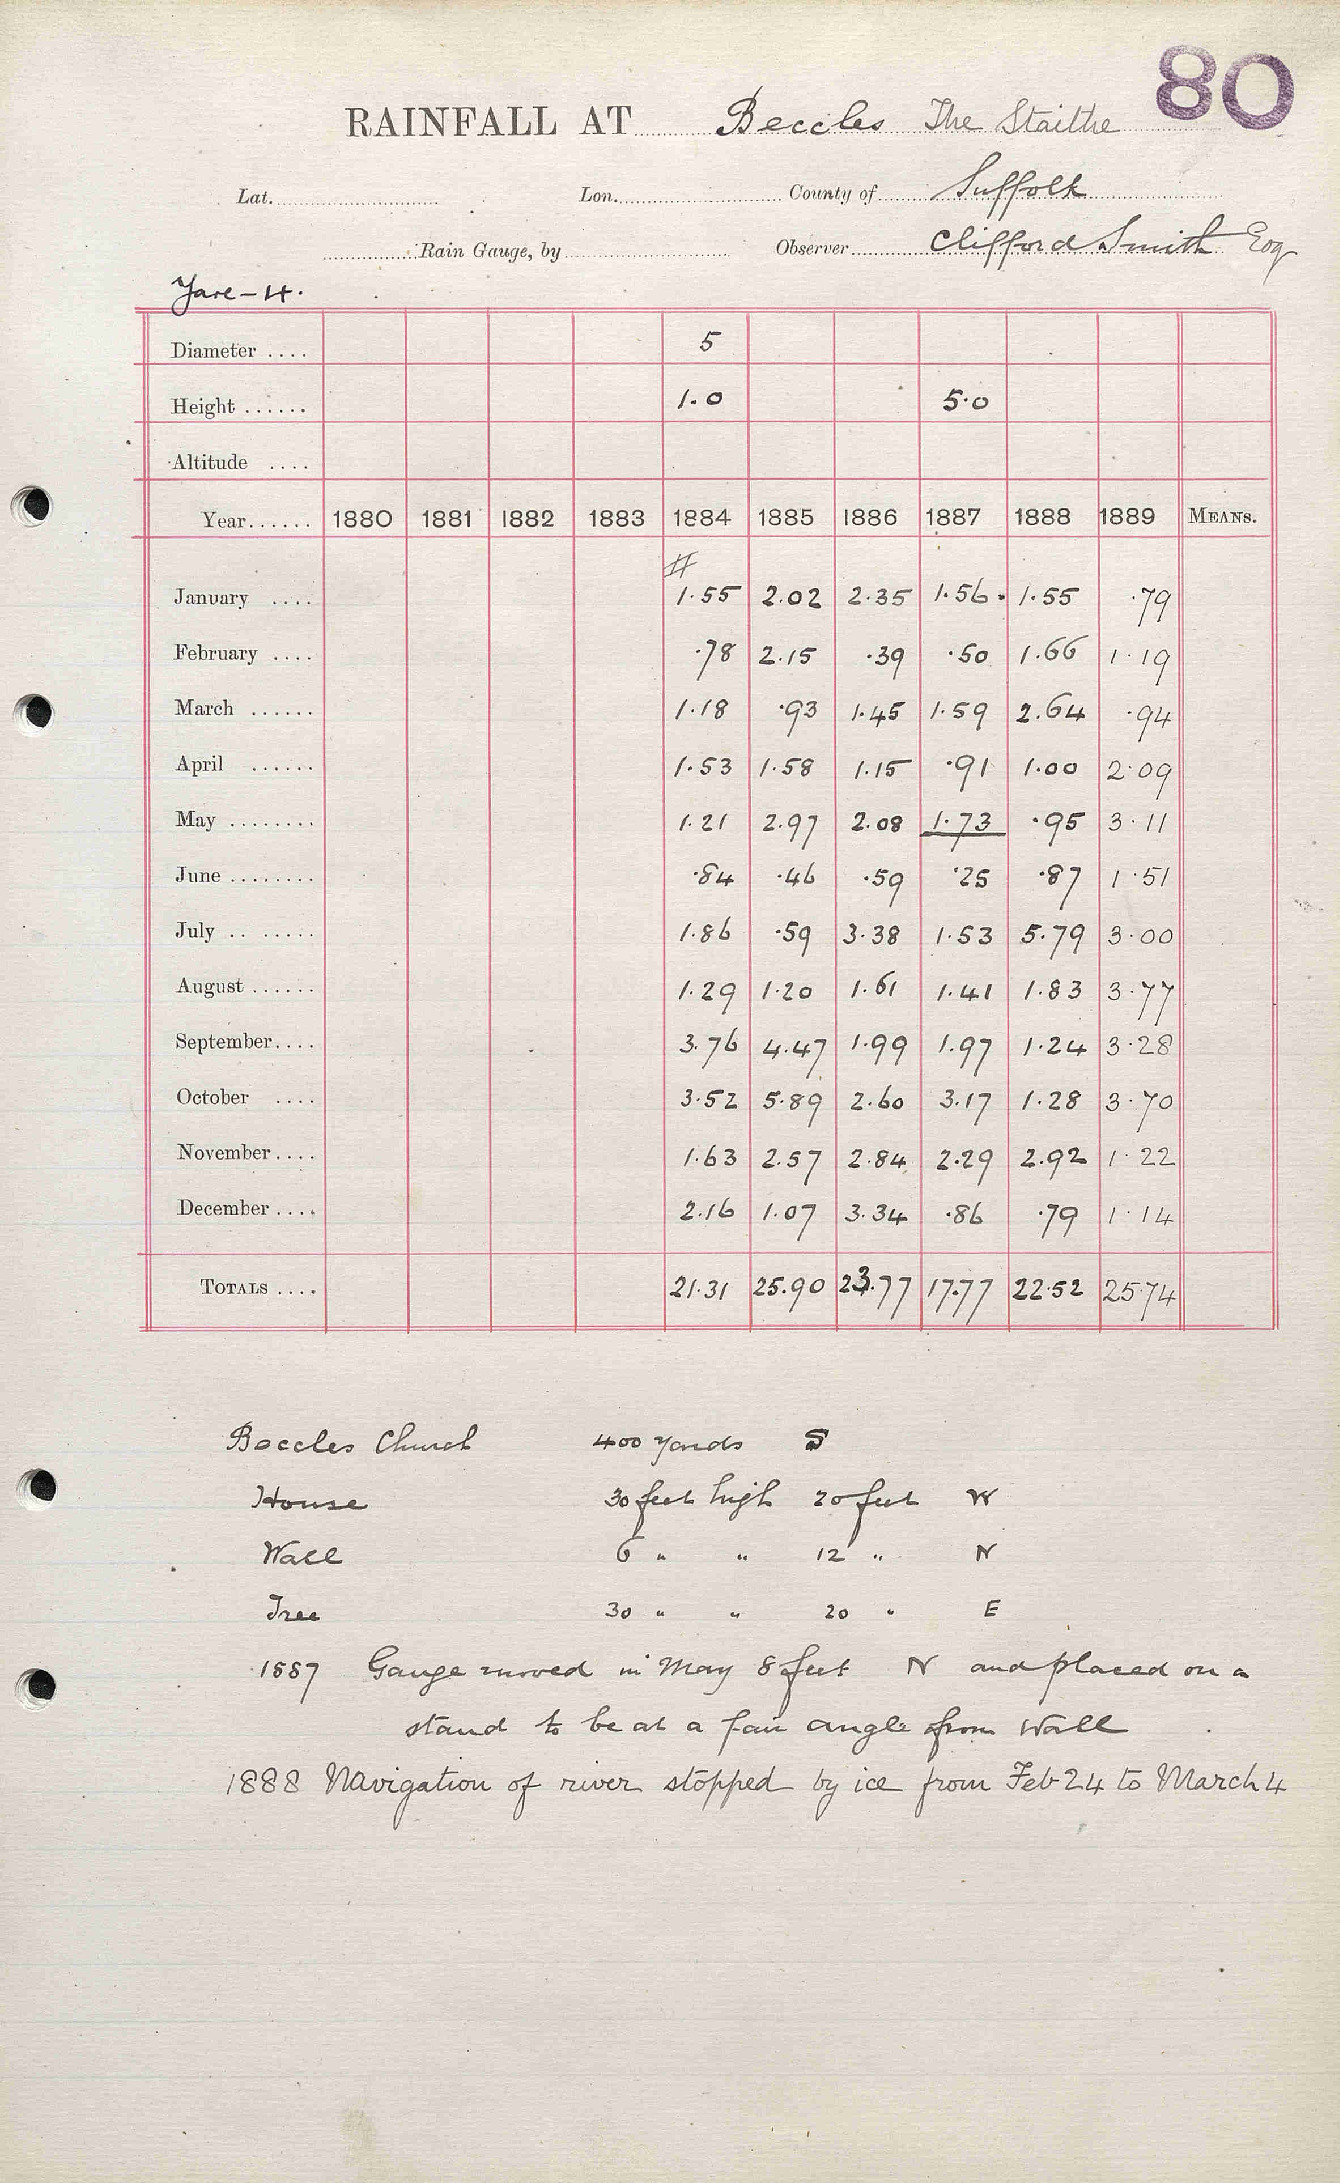 80
RAINFALL AT Beccles The Staithe
Lat. Lon. County of Suffolk
Rain Gauge, by Observer Clifford Smith Esq
Yare-4.
Diameter .... 5
Height ...... 1.0 5.0
Altitude ....
Year...... 1880 1881 1882 1883 1884 1885 1886 1887 1888 1889 MEANS.
#
January .... 1.55 2.02 2.35 1.56. 1.55 .79
February .... .78 2.15 .39 .50 1.66 1.19
March ...... 1.18 .93 1.45 1.59 2.64 .94
April ...... 1.53 1.58 1.15 .91 1.00 2.09
May ........ 1.21 2.97 2.08 1.73 .95 3.11
June ........ .84 .46 .59 .25 .87 1.51
July .. ..... 1.86 .59 3.38 1.53 5.79 3.00
August ...... 1.29 1.20 1.61 1.41 1.83 3.77
September.... 3.76 4.47 1.99 1.97 1.24 3.28
October .... 3.52 5.89 2.60 3.17 1.28 3.70
November.... 1.63 2.57 2.84 2.29 2.92 1.22
December.... 2.16 1.07 3.34 .86 .79 1.14
TOTALS .... 21.31 25.90 23.77 17.77 22.52 25.74
Beccles Church 400 yards S
House 30 feet high 20 feet W
Wall 6 " " 12 " N
Tree 30 " " 20 " E
1887 Gauge moved in May 8 feet N and placed on a
stand to be at a fair angle from Wall
1888 Navigation of river stopped by ice from Feb 24 to March 4